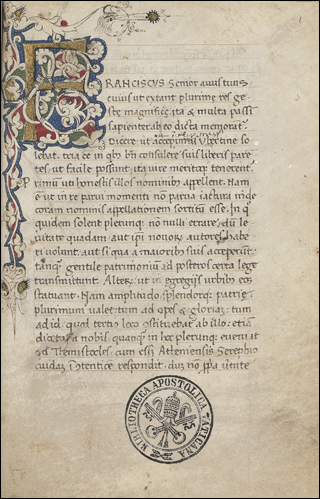 FRANCISCUS Senior avus tuus
cuius ut extant plurime res ge
ste magnifice, ita & multa passī
sapienter ab eo dicta memorāt
Dicere ut accepimus
lebat, tria eē in qb hīi consulere suis liberis paren
tes, ut facile possunt, ita vire meritoq; tenerent.
rimū uti honestis illos nominibᵒ appellent. Nam
ē ut in re parui momenti nō parua iactura inde
coram nominis appellationem sortitū esse. In q
quidem solent plerunq; nō nulli errare, dū le
uitate quadam aut ipī novoɤ autores habe
ri volunt, aut si qua a maioribᵒ suis acceperūt
tanq; gentile patrimoniū ad posteros certa lege
transmittunt. Alterū ut in egregijs urbibᵒ eos
statuant. Nam amplitudo, splendorq; patrie
plurimum valet, tum ad opes & glorias, tum
ad id, quod tertio loco ostituebat ab illo, etiā
dicetur a nobis, quanq̃ in hoc plerunq; evenit ut
Themistocles, cum esset Atheniensis Seriphio
cuidaz ptentice respondit, dūz nō ppa vtute
BIBLIOTHECA APOSTOLICA VATICANA